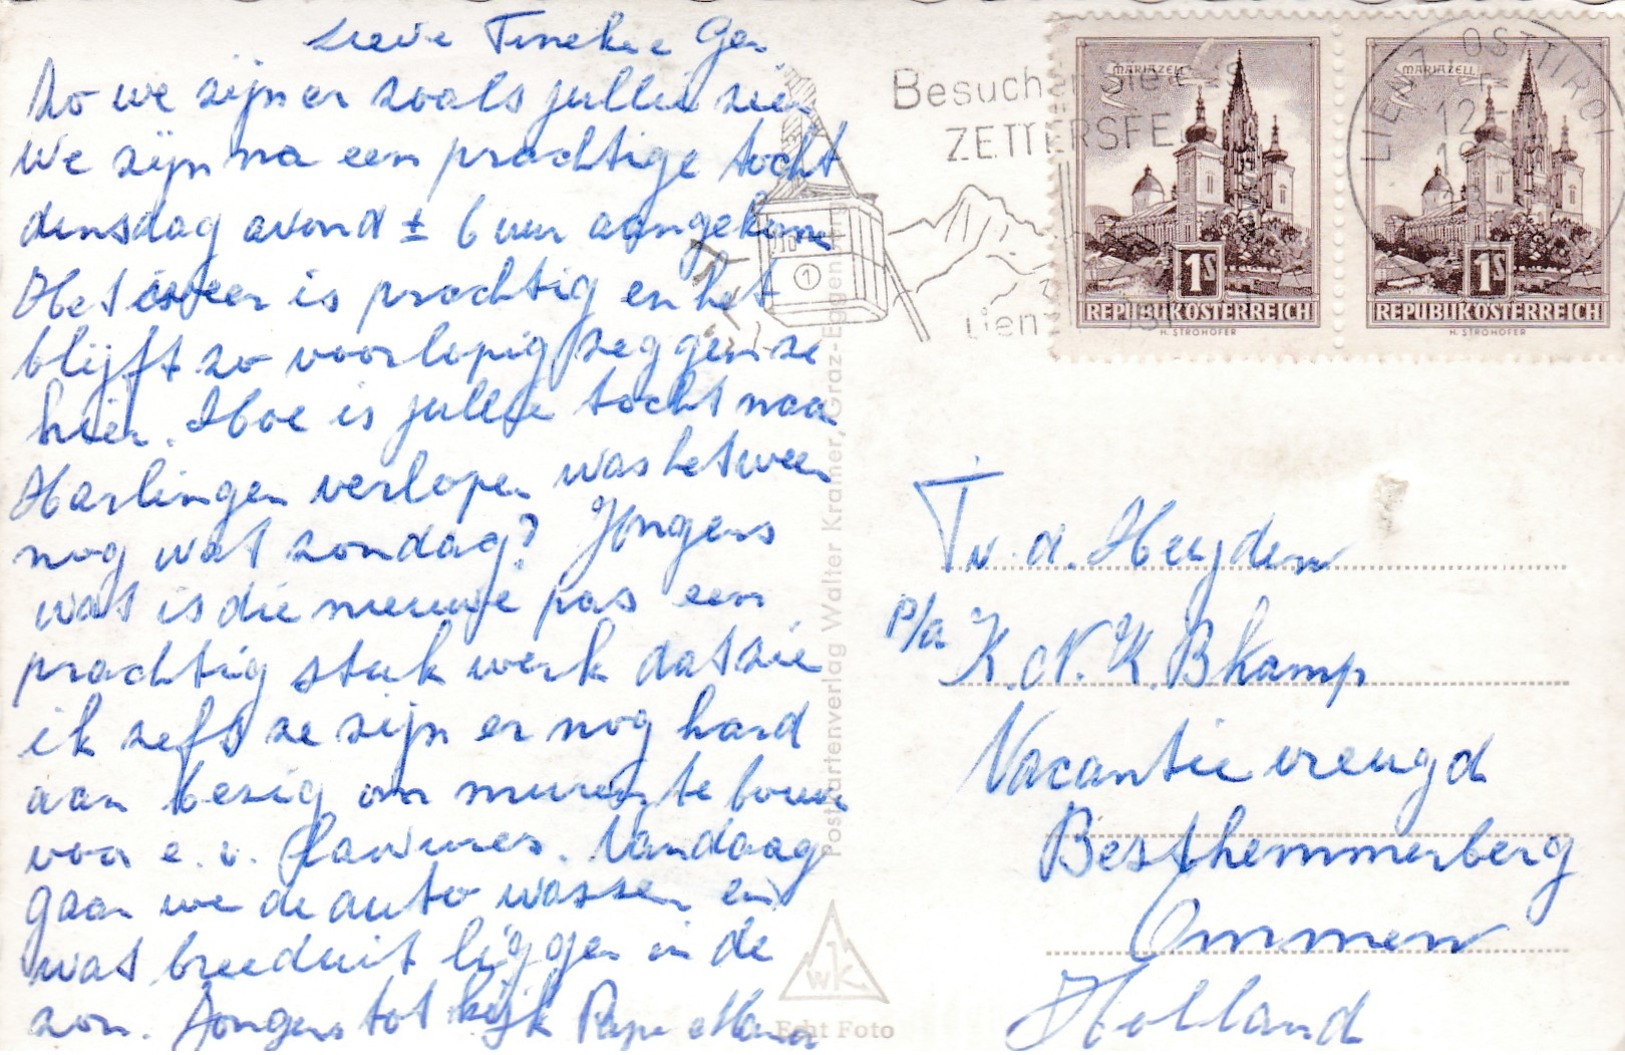 Lieve Tineke e Ger
Zo we zijn er zoals jullie zien
We zijn na een prachtige tocht
dinsdag avond ± 6 uur aangekomen
Het weer is prachtig en het
blijft zo voorlopig zeggen ze
hier. Hoe is jullie tocht naar
Harlingen verlopen was het weer
nog wat zondag? Jongens
wat is die nieuwe pas een
prachtig stuk werk dat zie
ik zelfs ze zijn er nog hard
aan bezig om muren te bouwen
voor e.v. Lawines. Vandaag
gaan we de auto wassen en
wat breeduit liggen in de
zon. Jongens tot kijk Papa Mama
Besuchen Sie
ZETTERSFE
Lienz
1
LIENZ OSTTIROL
MARIAZELL
1S
REPUBLIK ÖSTERREICH
H. STROHOFER
MARIAZELL
1S
REPUBLIK ÖSTERREICH
H. STROHOFER
Postkartenverlag Walter Kramer, Graz-Eggenberg
WK
Echt Foto
T v. d. Heyden
P/a K.N.K. Bkamp
Vacantie vreugd
Besthemmerberg
Ommen
Holland